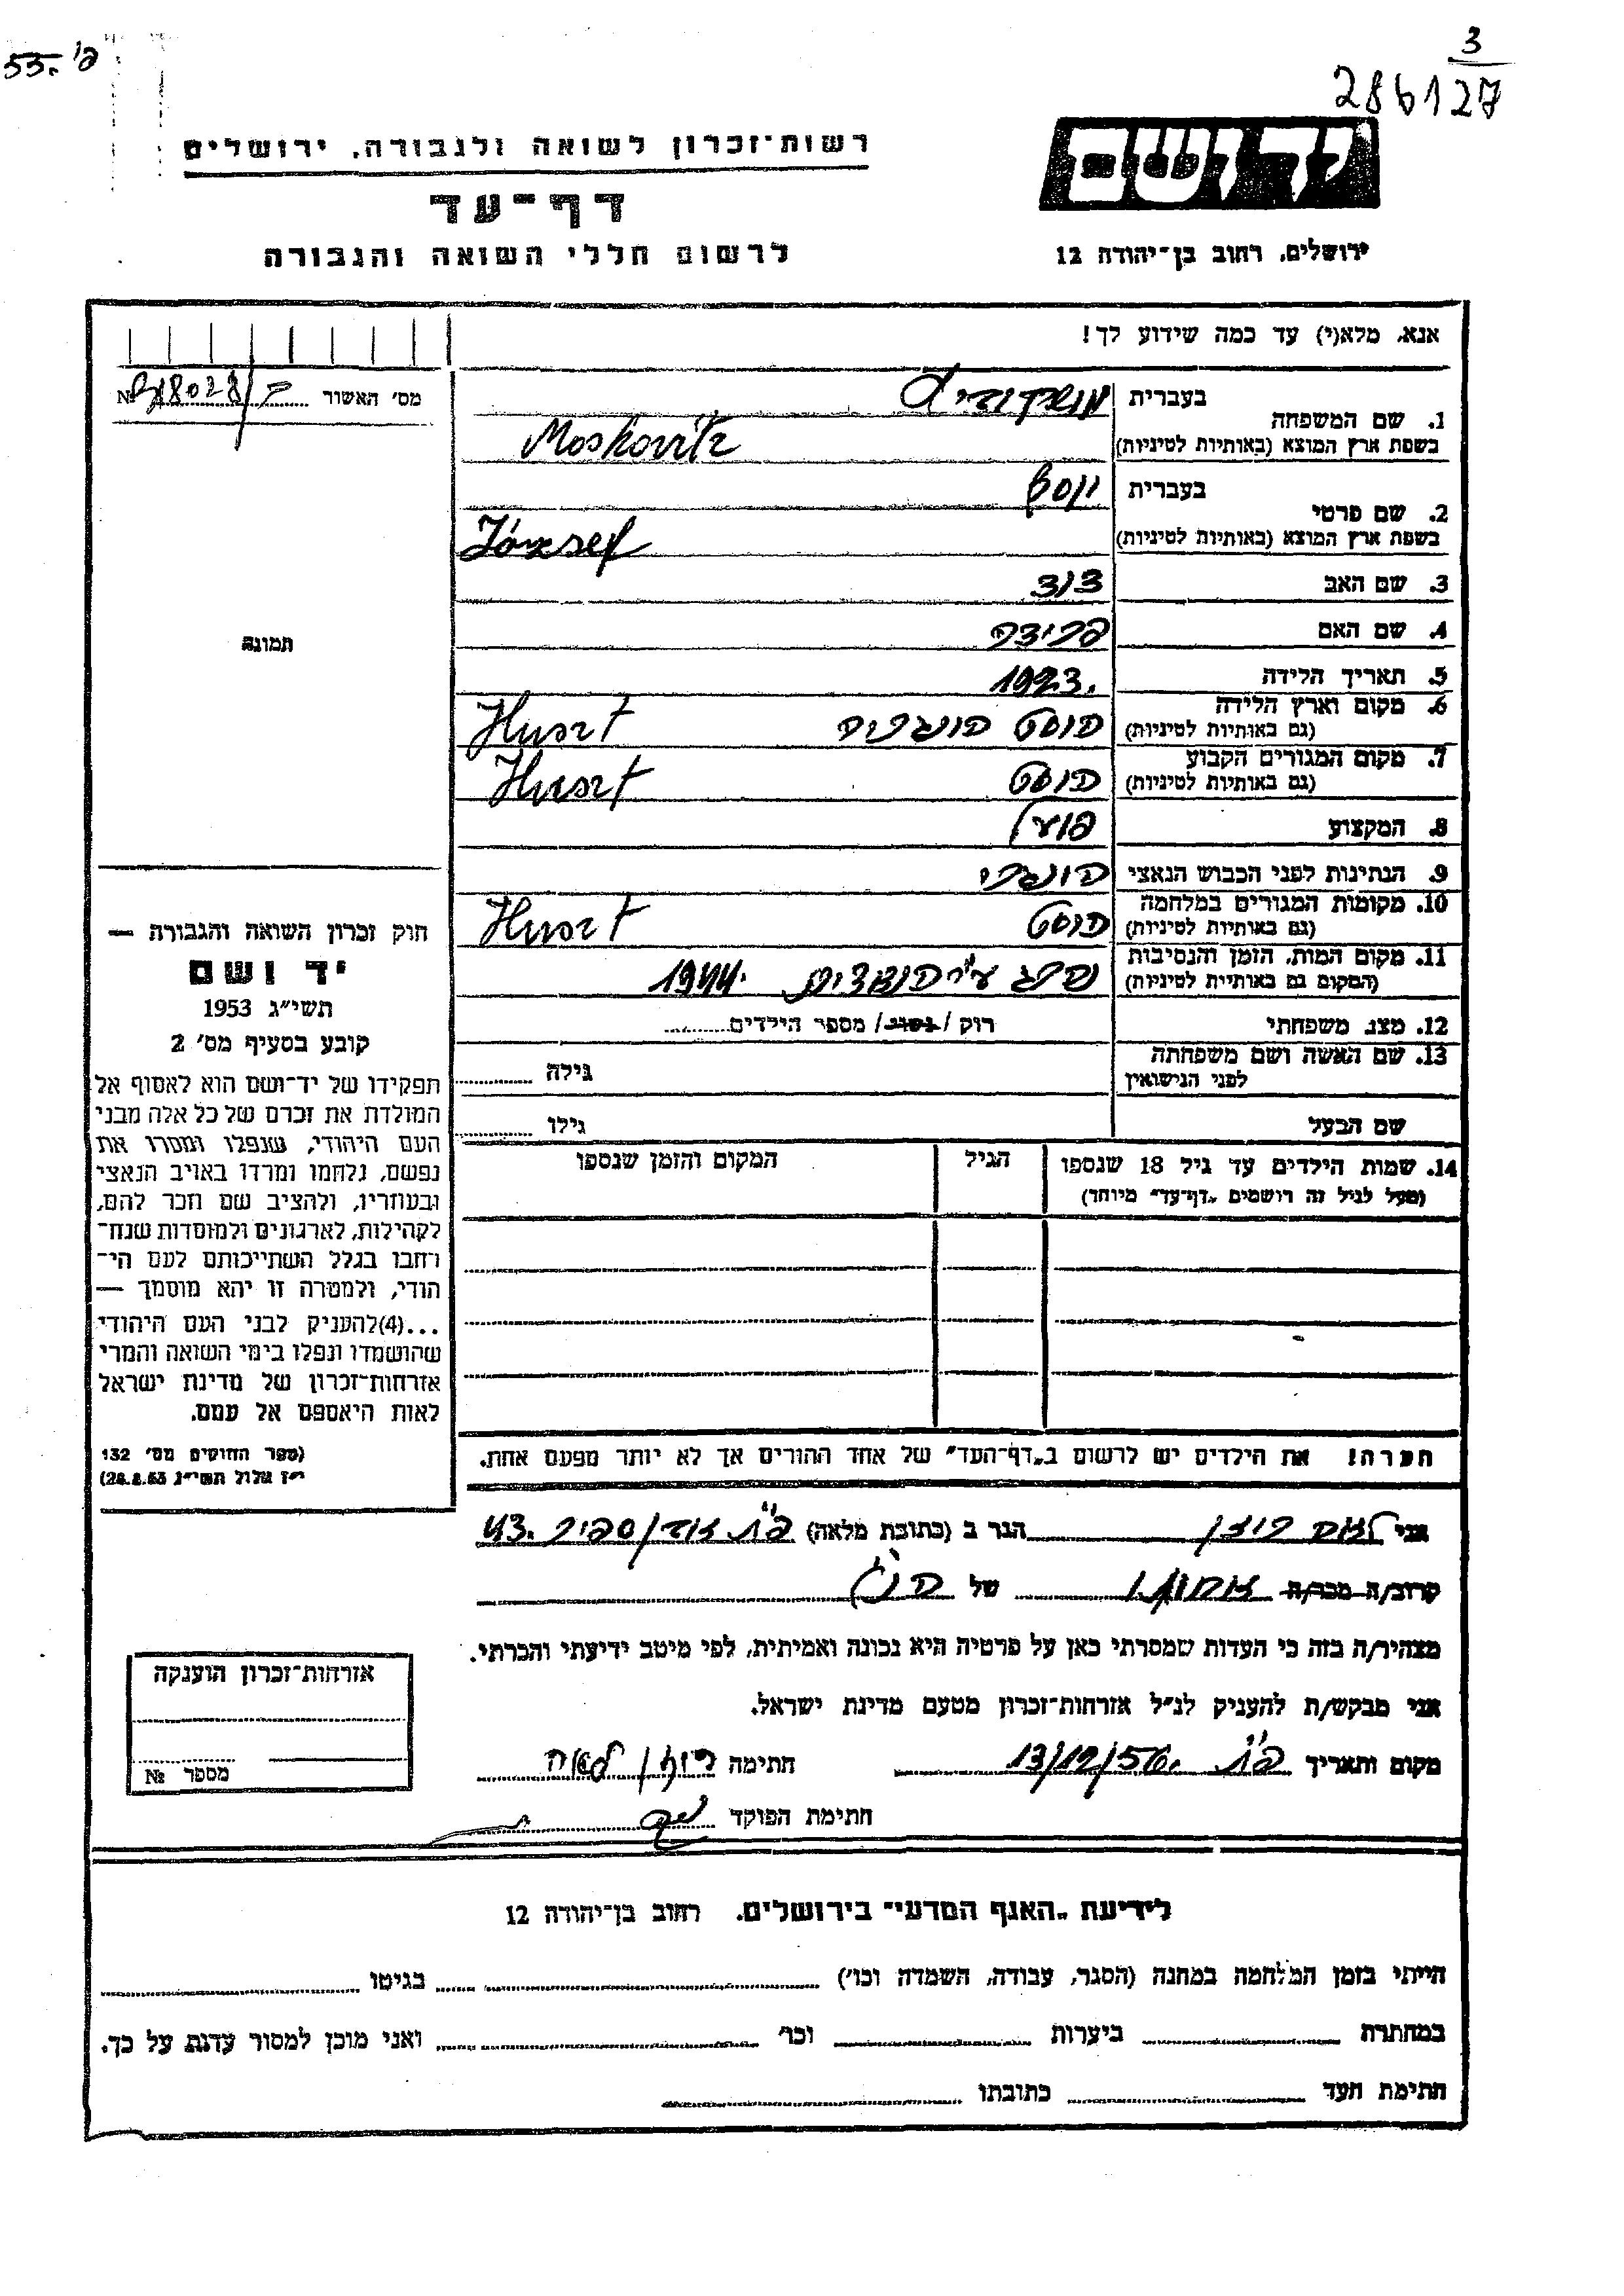 פ' 55.
3
286127
יד ושם
רשות-זכרון לשואה ולגבורה, ירושלים
דף-עד
לרשום חללי השואה והגבורה
ירושלים, רחוב בן-יהודה 12
אנא, מלא(י) עד כמה שידוע לך!
מס' האשור №
1. שם המשפחה בעברית מושקוביץ
בשפת ארץ המוצא (באותיות לטיניות) Moskovitz
2. שם פרטי בעברית יוסף
בשפת ארץ המוצא (באותיות לטיניות) József
3. שם האב
4. שם האם
5. תאריך הלידה 1923.
6. מקום וארץ הלידה (גם באותיות לטיניות) הוסט הונגריה Huszt
7. מקום המגורים הקבוע (גם באותיות לטיניות) הוסט Huszt
8. המקצוע פועל
9. הנתינות לפני הכבוש הנאצי הונגרי
10. מקומות המגורים במלחמה (גם באותיות לטיניות) הוסט Huszt
11. מקום המות, הזמן והנסיבות (המקום גם באותיות לטיניות) נהרג ע"י הנאצים 1944.
12. מצב משפחתי רווק / נשוי / מספר הילדים
13. שם האשה ושם משפחתה לפני הנישואין גילה
שם הבעל גילו
14. שמות הילדים עד גיל 18 שנספו הגיל המקום והזמן שנספו
(מעל לגיל זה רושמים "דף-עד" מיוחד)
הערה! את הילדים יש לרשום ב"דף-העד" של אחד ההורים אך לא יותר מפעם אחת.
תמונה
חוק זכרון השואה והגבורה —
יד ושם
תשי"ג 1953
קובע בסעיף מס' 2
תפקידו של יד-ושם הוא לאסוף אל
המולדת את זכרם של כל אלה מבני
העם היהודי, שנפלו ומסרו את
נפשם, נלחמו ומרדו באויב הנאצי
ובעוזריו, ולהציב שם וזכר להם,
לקהילות, לארגונים ולמוסדות שנח-
רבו בגלל השתייכותם לעם הי-
הודי, ולמטרה זו יהא מוסמך —
...(4) להעניק לבני העם היהודי
שהושמדו ונפלו בימי השואה והמרי
אזרחות-זכרון של מדינת ישראל
לאות היאספם אל עמם.
(ספר החוקים מס' 132
י"ז אלול תשי"ג 28.8.53)
אני הגר ב (כתובת מלאה) 43.
קרוב/ה מכר/ה אחותו של הנ"ל
מצהיר/ה בזה כי העדות שמסרתי כאן על פרטיה היא נכונה ואמיתית, לפי מיטב ידיעתי והכרתי.
אני מבקש/ת להעניק לנ"ל אזרחות-זכרון מטעם מדינת ישראל.
מקום ותאריך פ"ת 13/12/56. חתימה
חתימת הפוקד
אזרחות-זכרון הוענקה
מספר №
לידיעת "האגף המדעי" בירושלים, רחוב בן-יהודה 12
הייתי בזמן המלחמה במחנה (הסגר, עבודה, השמדה וכו') בגיטו
במחתרת ביערות וכו' ואני מוכן למסור עדות על כך.
חתימת העד כתובתו